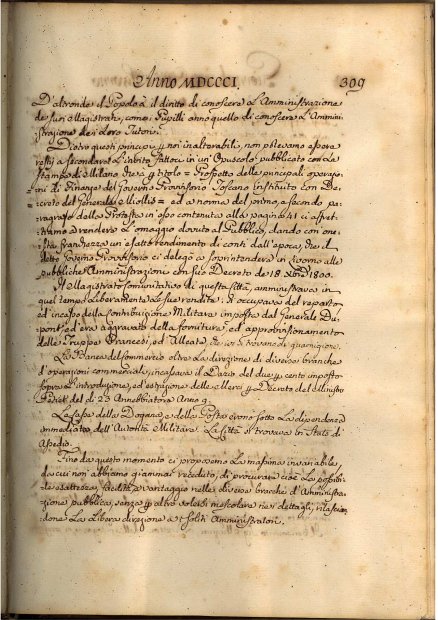 Anno MDCCCI. 309
D'altronde il Popolo à il diritto di conoscere L'Amministrazione
de suoi Magistrati, come i Pupilli anno quello di conoscere L'Ammini-
strazione de' loro Tutori.
Dietro questi principj p noi inalterabili, non potevamo esser
restij a secondare L'invito fattoci in un'Opuscolo pubblicato con La
stampa di Milano che à p titolo = Prospetto delle principali operazio-
ni di Finanze del Governo Provvisorio Toscano instituito con De-
creto del Generale Miollis = ed a norma del primo, e secondo pa-
ragrafo della Protesta in esso contenuta alla pagina 41 ci affret-
tiamo a rendere L'omaggio dovuto al Pubblico, dando con one-
sta franchezza un'esatto rendimento di conti dall'epoca, che il
detto Governo Provvisorio ci delegò a soprintendere in Livorno alle
pubbliche Amministrazioni con suo Decreto de' 18 Xbre 1800.
Il Magistrato Comunitativo di questa Città, amministrava in
quel tempo Liberamente le sue rendite: Si occupava del reparto
ed incasso della Contribuzione Militare imposta dal Generale Du-
pont, ed era aggravato della fornitura, ed approvisionamento
delle Truppe Francesi, ed Alleate, che ivi si trovano di guarnigione.
La Banca del Commercio oltre La direzione di diverse branche
d'operazioni commerciali, incassava il Dazio del due p cento imposto
sopra L'introduzione, ed estrazione delle Merci p Decreto del Ministro
del dì 23 Annebbiatora Anno 9.
Le Casse della Dogana, e della Posta erono sotto La dipendenza
immediata dell'Autorità Militare. La Città si trovava in Stato di
Assedio.
Fino da questo momento ci proponemo La massima invariabile,
da cui non abbiamo giammai receduto, di procurare cioè La possibi-
le esattezza, facilità, e vantaggio nelle diverse branche d'Amministra-
zione pubblica, senza p altro volersi mescolare ne' dettagli, rilascian-
done La Libera direzione a' soliti Amministratori.